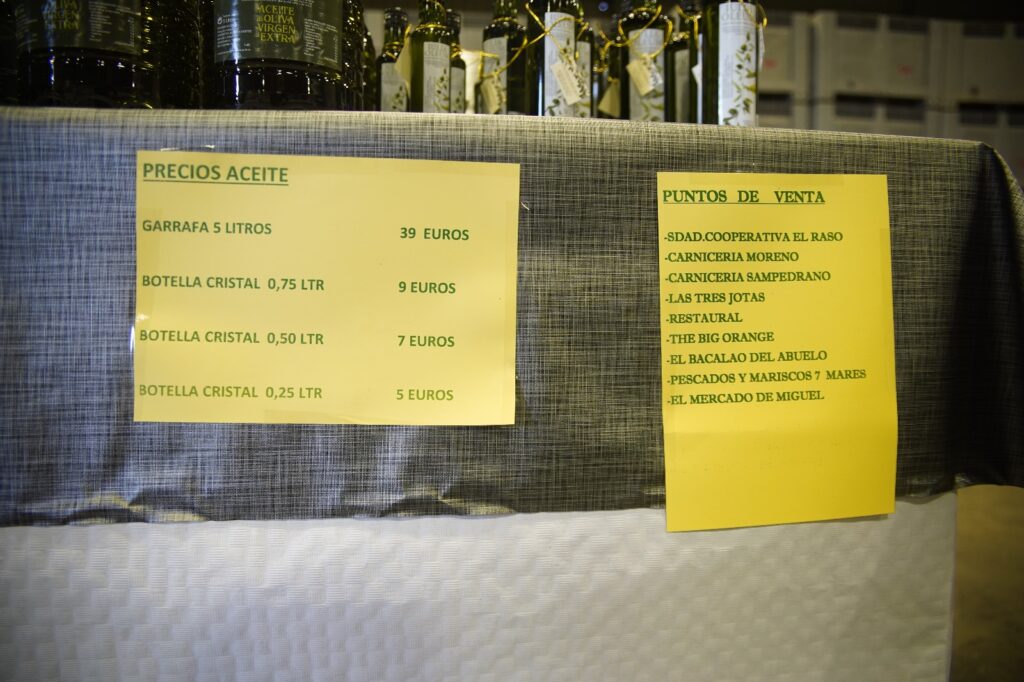 ACEITE
DE OLIVA
VIRGEN
EXTRA
PRECIOS ACEITE
GARRAFA 5 LITROS 39 EUROS
BOTELLA CRISTAL 0,75 LTR 9 EUROS
BOTELLA CRISTAL 0,50 LTR 7 EUROS
BOTELLA CRISTAL 0,25 LTR 5 EUROS
PUNTOS DE VENTA
-SDAD.COOPERATIVA EL RASO
-CARNICERIA MORENO
-CARNICERIA SAMPEDRANO
-LAS TRES JOTAS
-RESTAURAL
-THE BIG ORANGE
-EL BACALAO DEL ABUELO
-PESCADOS Y MARISCOS 7 MARES
-EL MERCADO DE MIGUEL